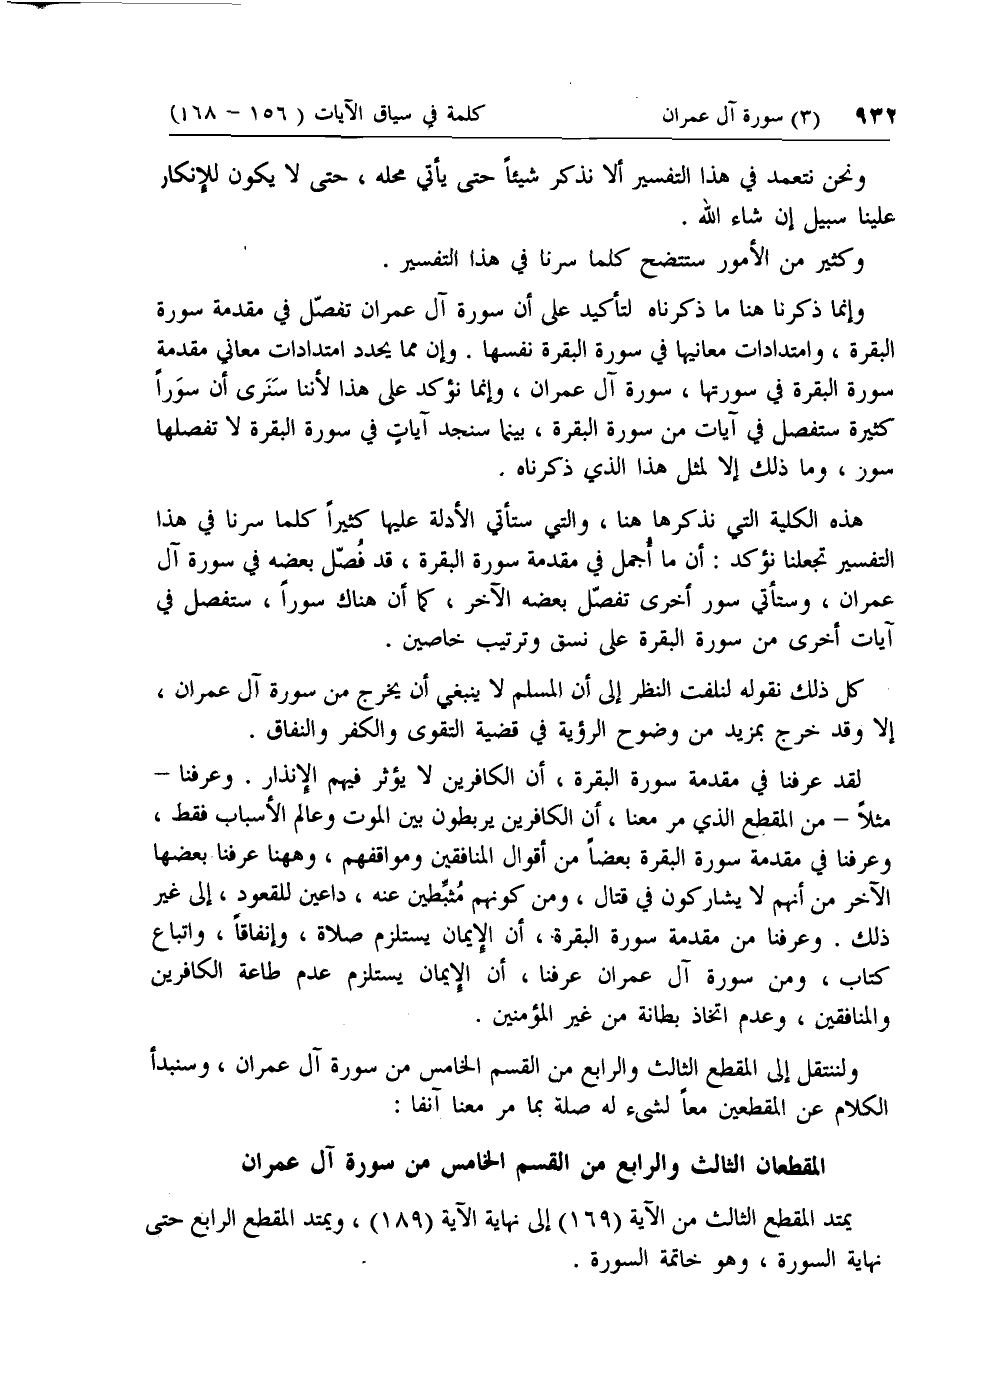 ٩٣٢ (٣) سورة آل عمران كلمة في سياق الآيات ( ١٥٦ – ١٦٨)
ونحن نتعمد في هذا التفسير ألا نذكر شيئاً حتى يأتي محله ، حتى لا يكون للإنكار
علينا سبيل إن شاء الله .
وكثير من الأمور ستتضح كلما سرنا في هذا التفسير .
وإنما ذكرنا هنا ما ذكرناه لتأكيد على أن سورة آل عمران تفصّل في مقدمة سورة
البقرة ، وامتدادات معانيها في سورة البقرة نفسها . وإن مما يحدد امتدادات معاني مقدمة
سورة البقرة في سورتها ، سورة آل عمران ، وإنما نؤكد على هذا لأننا سَنَرى أن سوَراً
كثيرة ستفصل في آيات من سورة البقرة ، بينما سنجد آياتٍ في سورة البقرة لا تفصلها
سور ، وما ذلك إلا لمثل هذا الذي ذكرناه .
هذه الكلية التي نذكرها هنا ، والتي ستأتي الأدلة عليها كثيراً كلما سرنا في هذا
التفسير تجعلنا نؤكد : أن ما أُجمل في مقدمة سورة البقرة ، قد فُصّل بعضه في سورة آل
عمران ، وستأتي سور أخرى تفصّل بعضه الآخر ، كما أن هناك سوراً ، ستفصل في
آيات أخرى من سورة البقرة على نسق وترتيب خاصين .
كل ذلك نقوله لنلفت النظر إلى أن المسلم لا ينبغي أن يخرج من سورة آل عمران ،
إلا وقد خرج بمزيد من وضوح الرؤية في قضية التقوى والكفر والنفاق .
لقد عرفنا في مقدمة سورة البقرة ، أن الكافرين لا يؤثر فيهم الإنذار . وعرفنا –
مثلاً – من المقطع الذي مر معنا ، أن الكافرين يربطون بين الموت وعالم الأسباب فقط ،
وعرفنا في مقدمة سورة البقرة بعضاً من أقوال المنافقين ومواقفهم ، وههنا عرفنا بعضها
الآخر من أنهم لا يشاركون في قتال ، ومن كونهم مُثبِّطين عنه ، داعين للقعود ، إلى غير
ذلك . وعرفنا من مقدمة سورة البقرة ، أن الإيمان يستلزم صلاة ، وإنفاقاً ، واتباع
كتاب ، ومن سورة آل عمران عرفنا ، أن الإيمان يستلزم عدم طاعة الكافرين
والمنافقين ، وعدم اتخاذ بطانة من غير المؤمنين .
ولننتقل إلى المقطع الثالث والرابع من القسم الخامس من سورة آل عمران ، وسنبدأ
الكلام عن المقطعين معاً لشيء له صلة بما مر معنا آنفا :
المقطعان الثالث والرابع من القسم الخامس من سورة آل عمران
يمتد المقطع الثالث من الآية (١٦٩) إلى نهاية الآية (١٨٩) ، ويمتد المقطع الرابع حتى
نهاية السورة ، وهو خاتمة السورة .